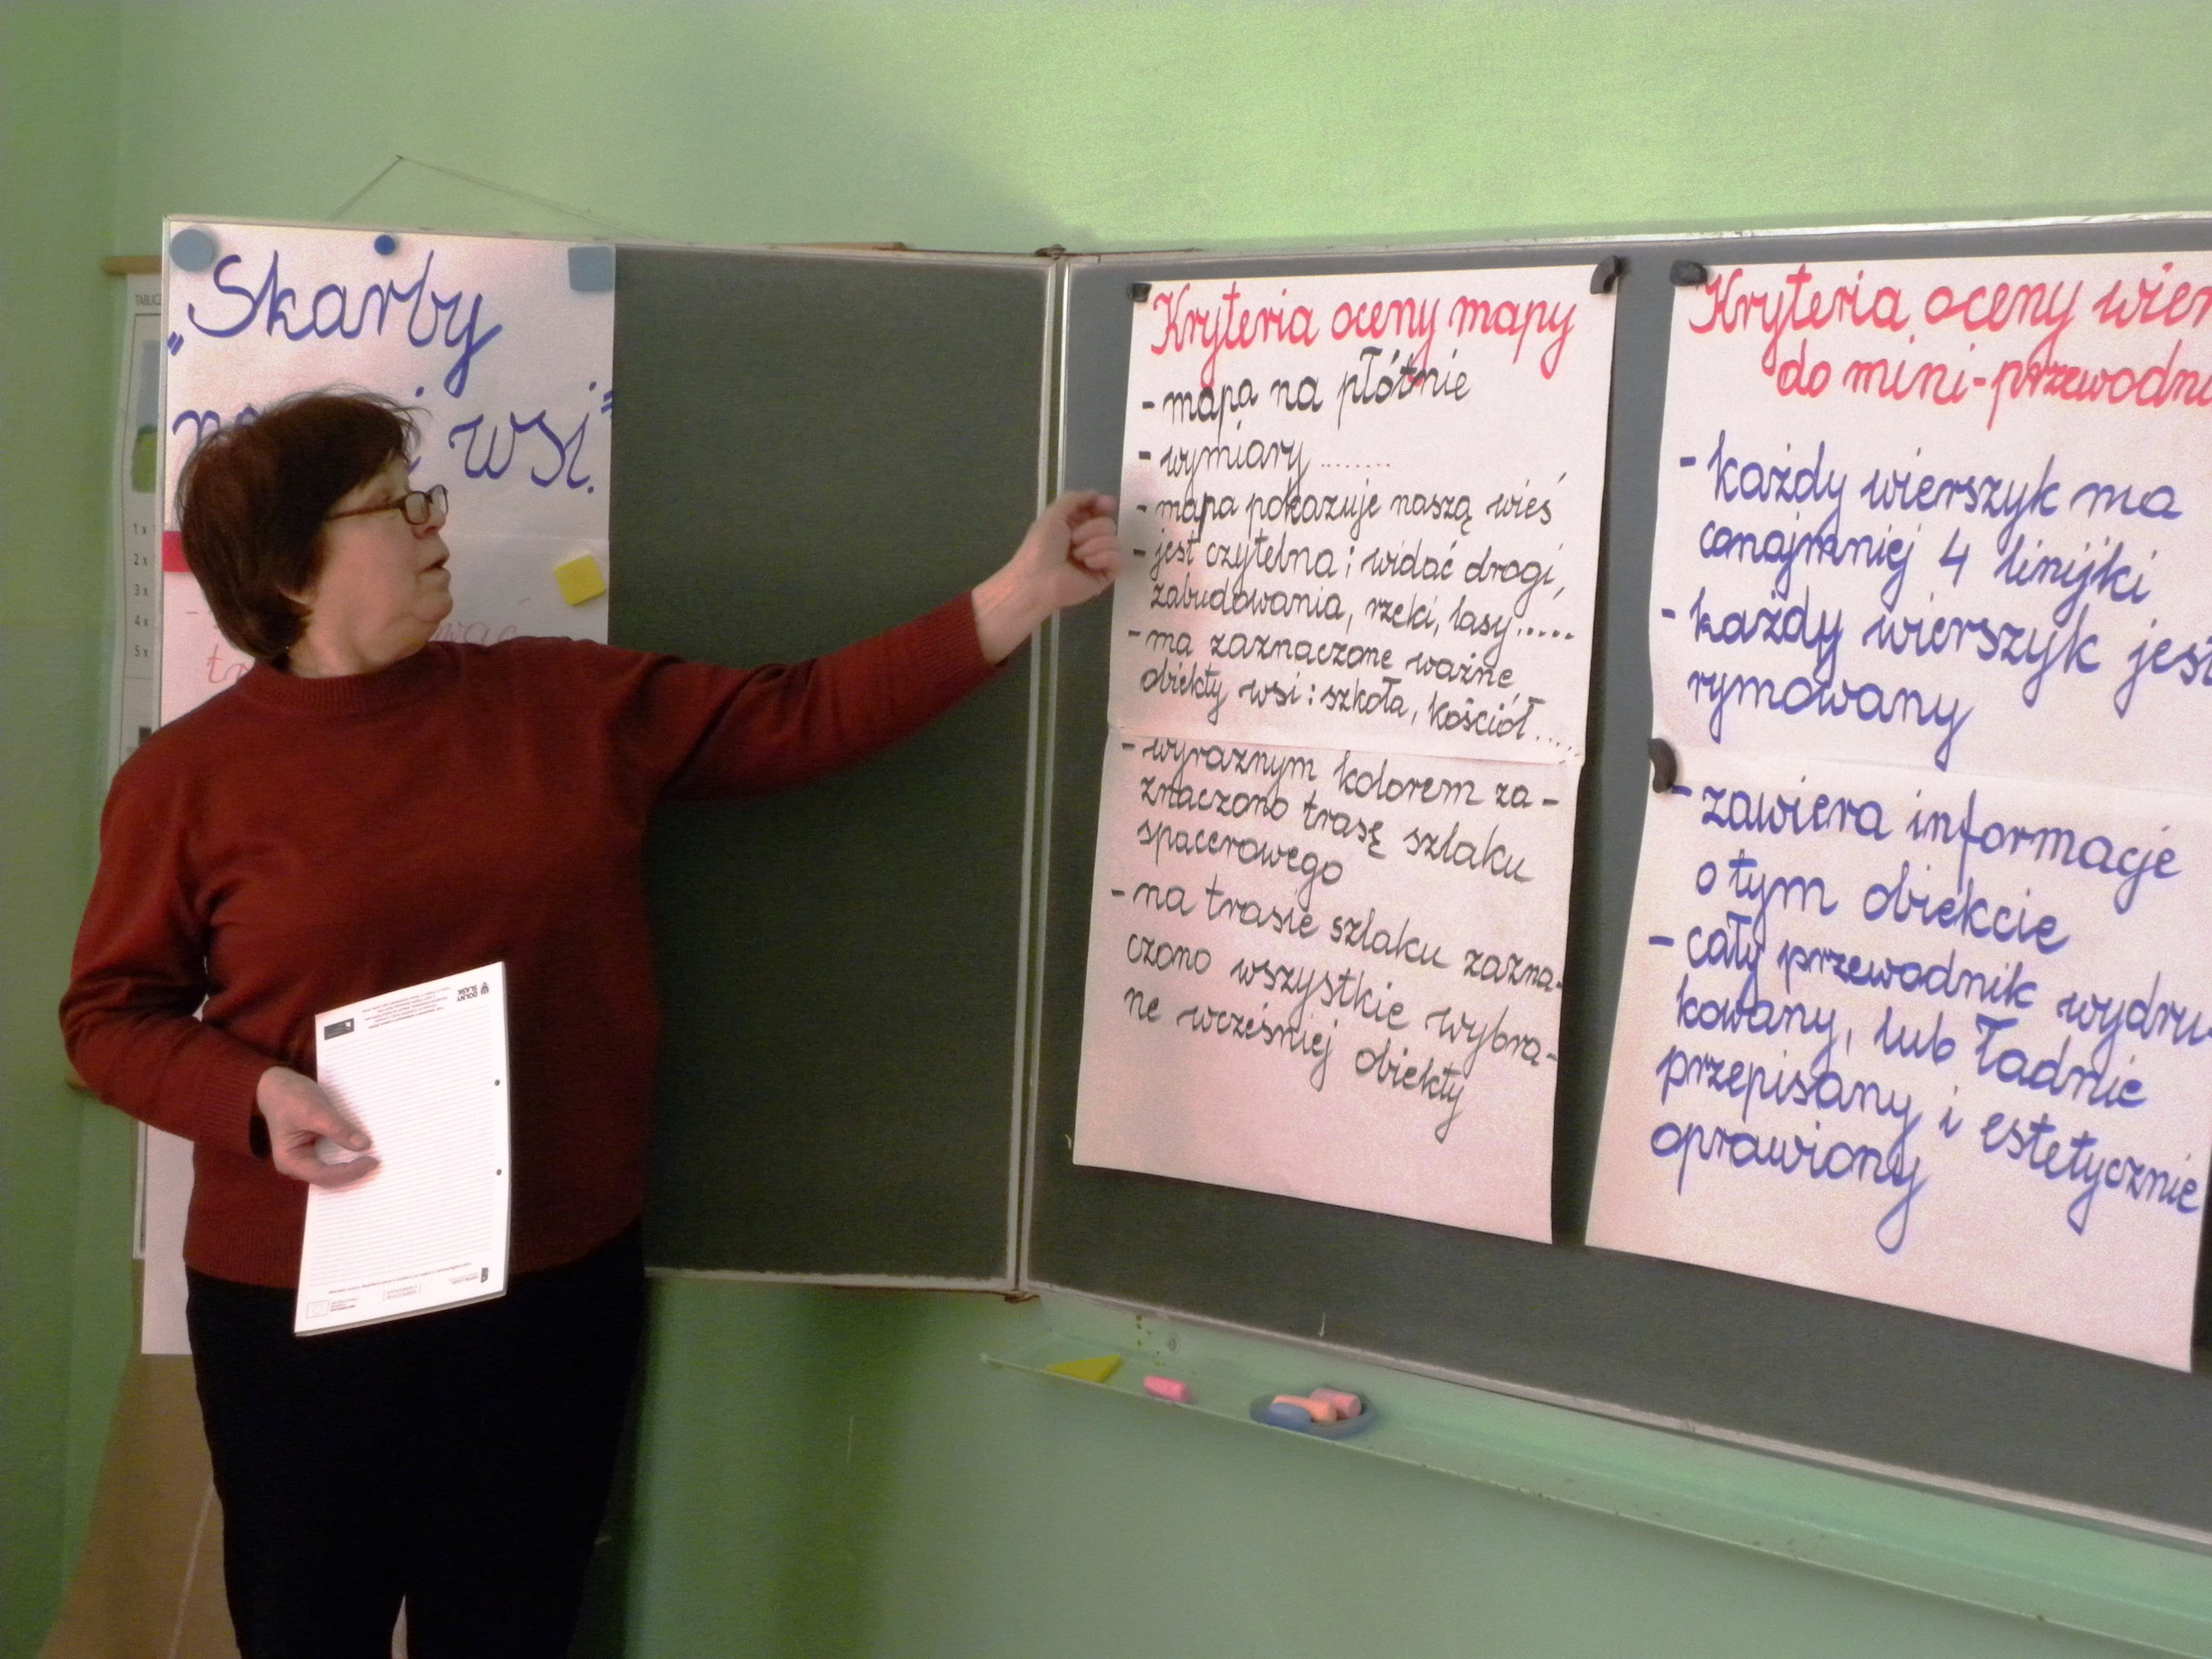 „Skarby
wsi."
TABLIC
1 x
2 x
3 x
4 x
5 x
DOLNY
ŚLĄSK
Kryteria oceny mapy
- mapa na płótnie
- wymiary ........
- mapa pokazuje naszą wieś
- jest czytelna: widać drogi,
zabudowania, rzeki, lasy.....
- ma zaznaczone ważne
obiekty wsi: szkoła, kościół.....
- wyraznym kolorem za-
znaczono trasę szlaku
spacerowego
- na trasie szlaku zazna-
czono wszystkie wybra-
ne wcześniej obiekty
Kryteria oceny wier
do mini-przewodni
- każdy wierszyk ma
conajmniej 4 linijki
- każdy wierszyk jest
rymowany
- zawiera informacje
o tym obiekcie
- cały przewodnik wydru-
kowany, lub ładnie
przepisany i estetycznie
oprawiony